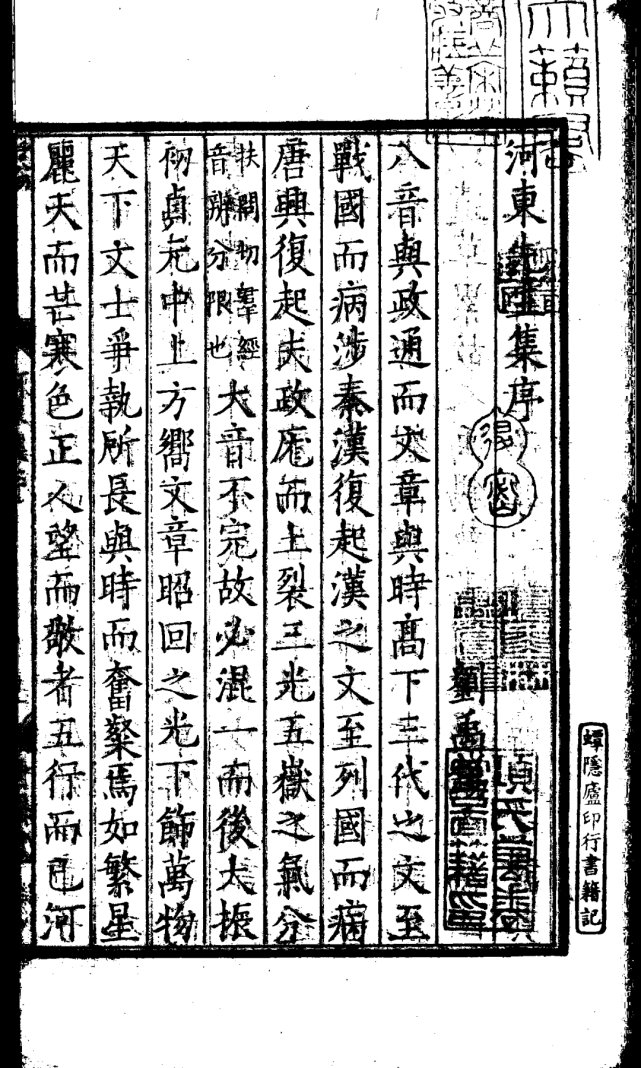 天籟閣
蟫隱廬印行書籍記
河東先生集序
劉禹
八音與政通而文章與時髙下三代之文至
戰國而病涉秦漢復起漢之文至列國而病
唐興復起夫政龐而土裂三光五嶽之氣分
扶問切羣經
音辨分限也
大音不完故必混一而後大振
初貞元中上方嚮文章昭回之光下飾萬物
天下文士爭執所長與時而奮粲焉如繁星
麗天而芒寒色正人望而敬者五行而已河